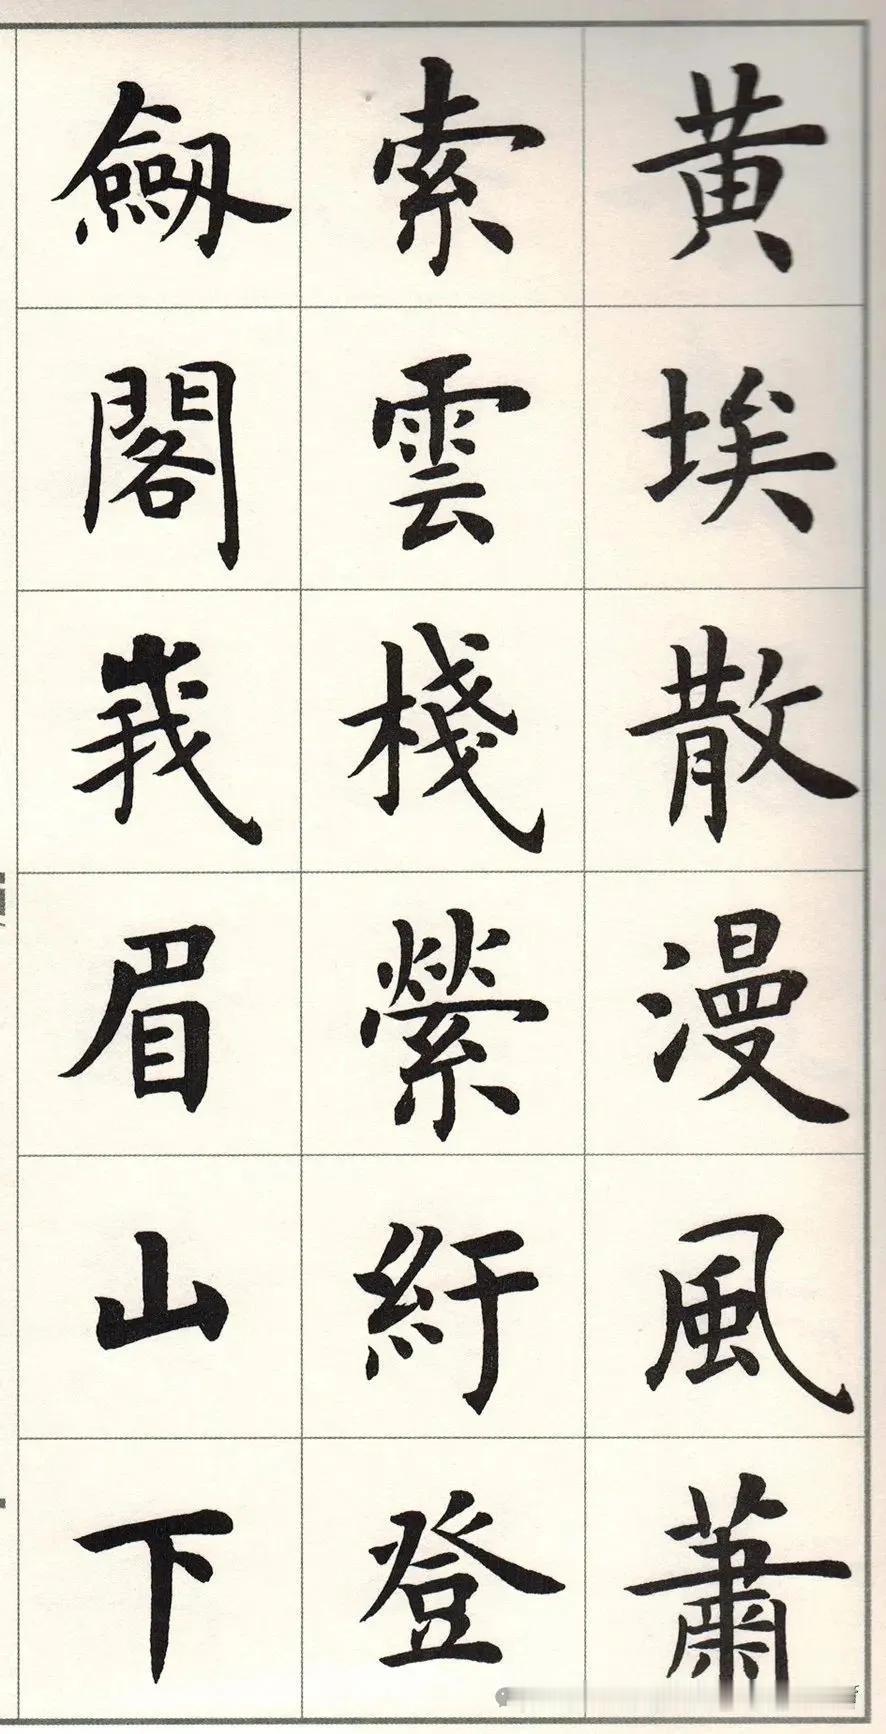 黄埃散漫風蕭
索雲棧縈紆登
劒閣峩眉山下